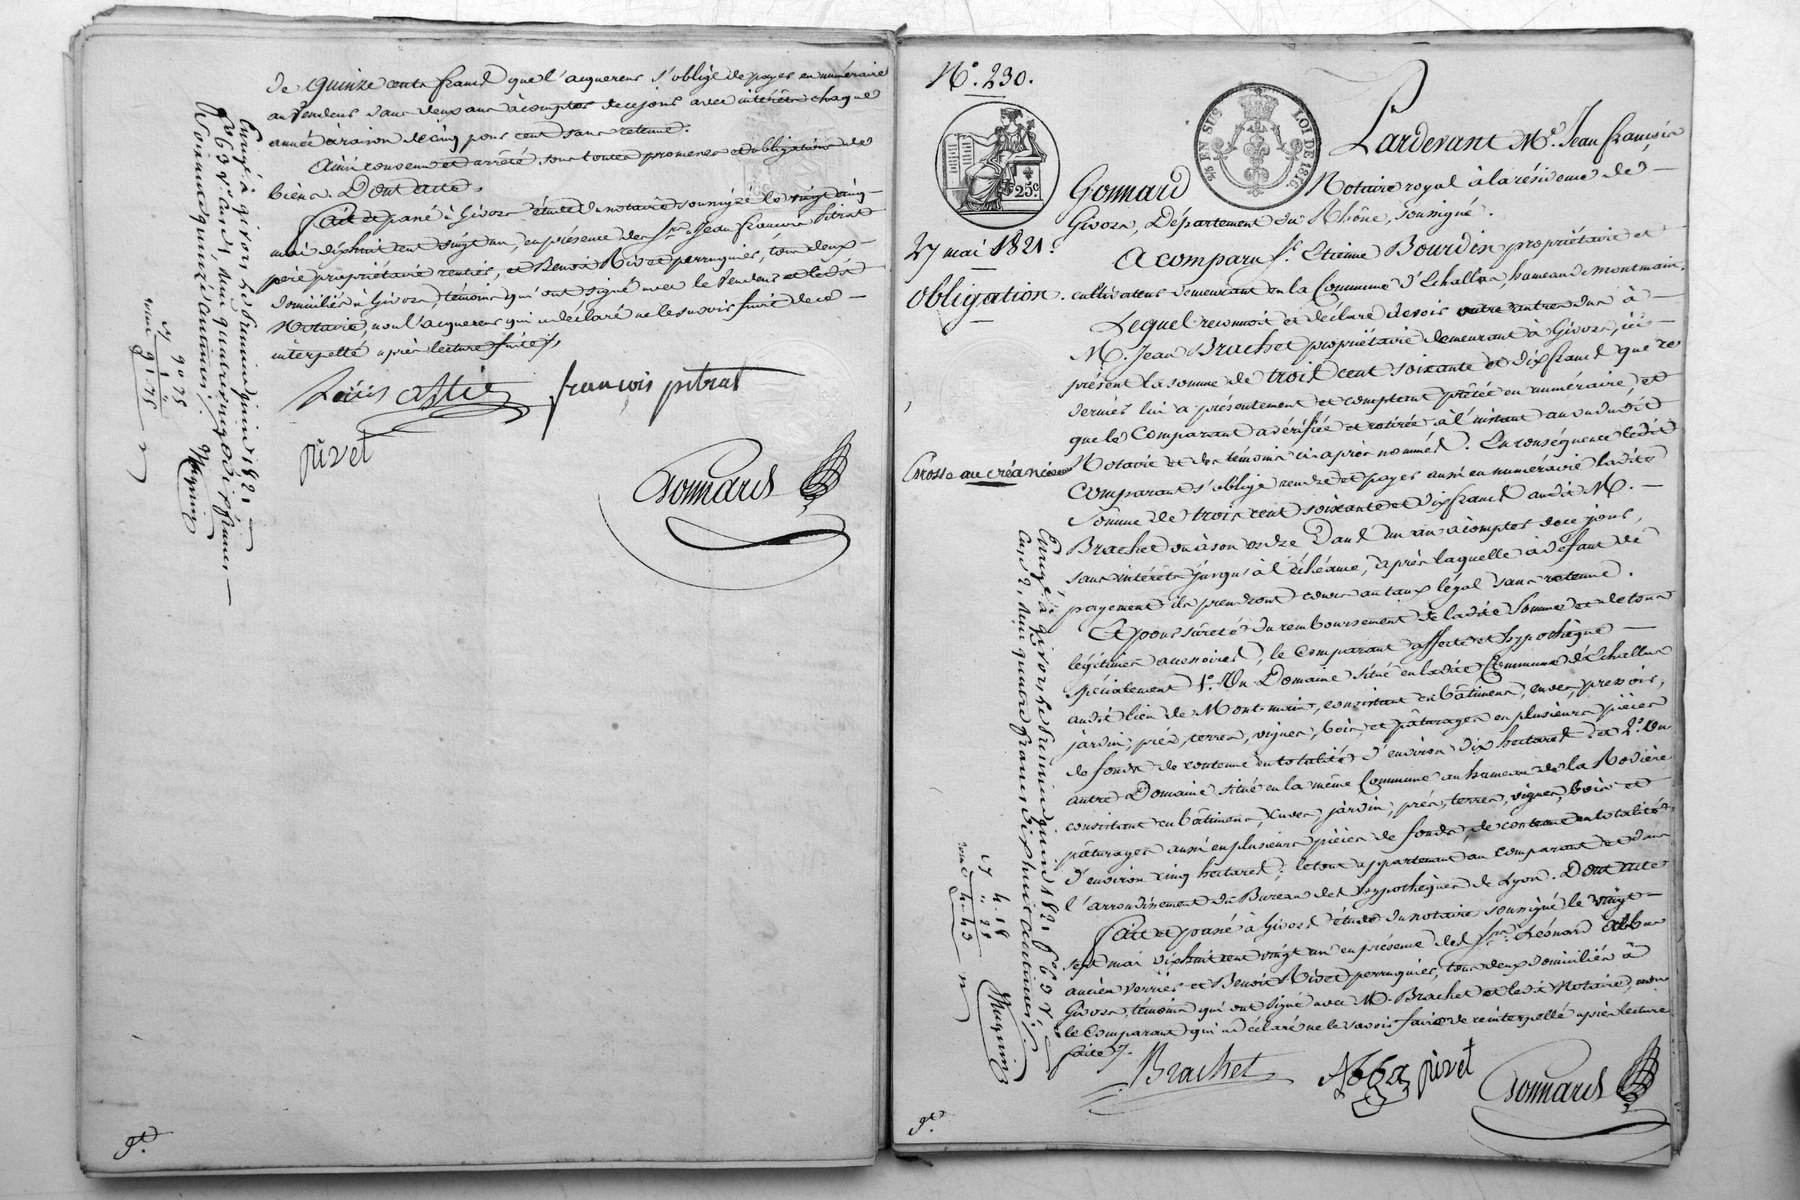 de quinze cents francs que l'acquereur s'oblige de payer en numéraire
au vendeur dans deux ans à compter de ce jour avec intérêts chaque
année à raison de cinq pour cent sans retenue.
Ainsi convenu et arrêté, sous toutes promesses et obligations de
biens. Dont acte.
Fait et passé à Givors étude du notaire soussigné le vingt cinq
mai dix huit cent vingt un, en présence de Srs. Jean François Pitrat
père propriétaire rentier, et Benoit Rivet perruquier, tous deux
domiciliés à Givors, témoins qui ont signé avec le Vendeur et ledit
Notaire, non l'acquereur qui a déclaré ne le savoir faire de ce
interpellé après lecture faite /.
françois pitrat
rivet
Gonnard
Enregé à givors, le premier juin 1821
fo 63 Vo
Magnin
90 75
1 "
91.75
gd.
No. 230.
25c
EN SUS
LOI DE 1816.
27 mai 1821.
Obligation.
Grosse au créancier
Pardevant Me. Jean françois
Gonnard Notaire royal à la résidence de
Givors, Département du Rhône, soussigné.
A comparu sr. Etienne Bourdin propriétaire et
cultivateur demeurant en la Commune d'Echallas, hameau de Montmain.
Lequel reconnoit et déclare devoir
M. Jean Brachet propriétaire demeurant à Givors, ici
présent la somme de trois cent soixante et dix francs que ce
dernier lui a présentement et comptant prêtée en numéraire, et
que le Comparant a vérifiée et retirée à l'instant au vu dudit
Notaire et des témoins ci après nommés. En conséquence ledit
Comparant s'oblige rendre et payer aussi en numéraire ladite
somme de trois cent soixante et dix francs audit M.
Brachet ou à son ordre dans un an à compter de ce jour,
sans intérêts jusqu'à l'échéance, après laquelle à défaut de
payement ils prendront cours au taux légal sans retenue.
Et pour sûreté du remboursement de ladite somme et de tous
légitimes accessoires, le Comparant affecte et hypothèque
spécialement 1o. Un Domaine situé en ladite Commune d'Echallas
audit lieu de Montmain, consistant en bâtimens, cuves, pressoir,
jardin, prés, terres, vignes, bois et pâturages en plusieurs pièces
de fonds de contenue en totalité d'environ dix hectares et 2o. Un
autre Domaine situé en la même Commune au hameau de la Rodière
consistant en bâtimens, cuves, jardin, prés, terres, vignes, bois et
pâturages aussi en plusieurs pièces de fonds, de contenue en totalité
d'environ cinq hectares; le tout appartenant au comparant et dans
l'arrondissement du Bureau des hypothèques de Lyon. Dont acte
Fait et passé à Givors étude du notaire soussigné le vingt
sept mai dix huit cent vingt un en présence des Srs. Léonard Abba
ancien verrier et Benoit Rivet perruquier, tous deux domiciliés à
Givors, témoins qui ont signé avec M. Brachet et ledit Notaire, non
le Comparant qui a déclaré ne le savoir faire de ce interpellé après lecture
faite /.
Brachet
Abba
rivet
Gonnard
Enregé à givors, le premier juin 1821 fo 63 Vo
quatre francs dix huit centimes
Magnin
4.18
4.43
gd.